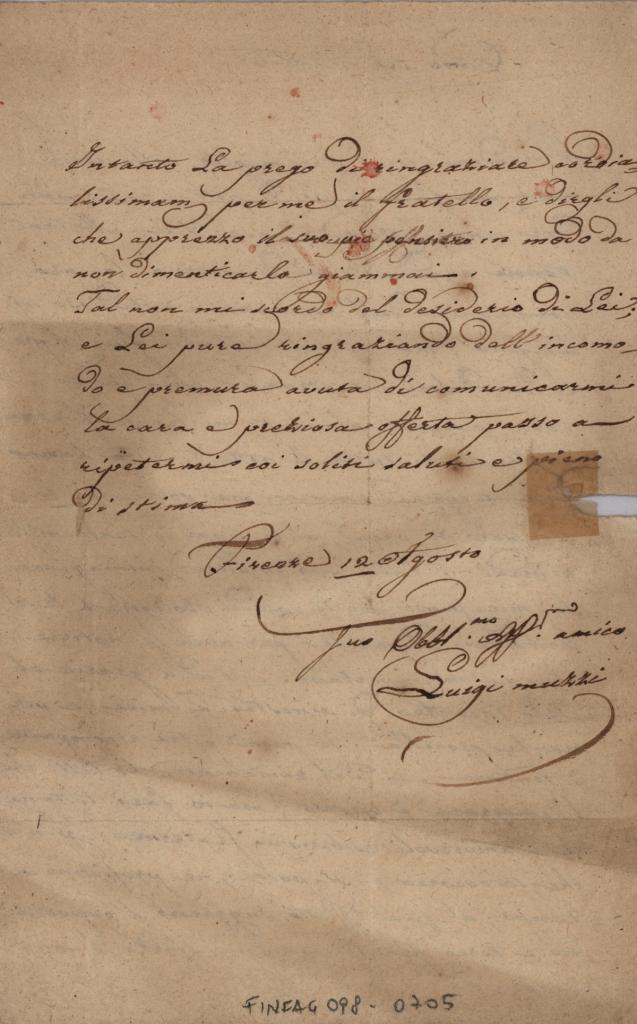 Intanto La prego di ringraziare cordia-
lissimam per me il fratello, e dirgli
che apprezzo il suo pio pensiero in modo da
non dimenticarlo giammai.
Tal non mi scordo del desiderio di Lei;
e Lei pure ringraziando dell'incomo-
do e premura avuta di comunicarmi
la cara e preziosa offerta passo a
ripetermi coi soliti saluti e pieno
di stima
Firenze 12 Agosto
Suo Obbl.mo Aff.mo amico
Luigi Muzzi
FINFAG 098 - 0705